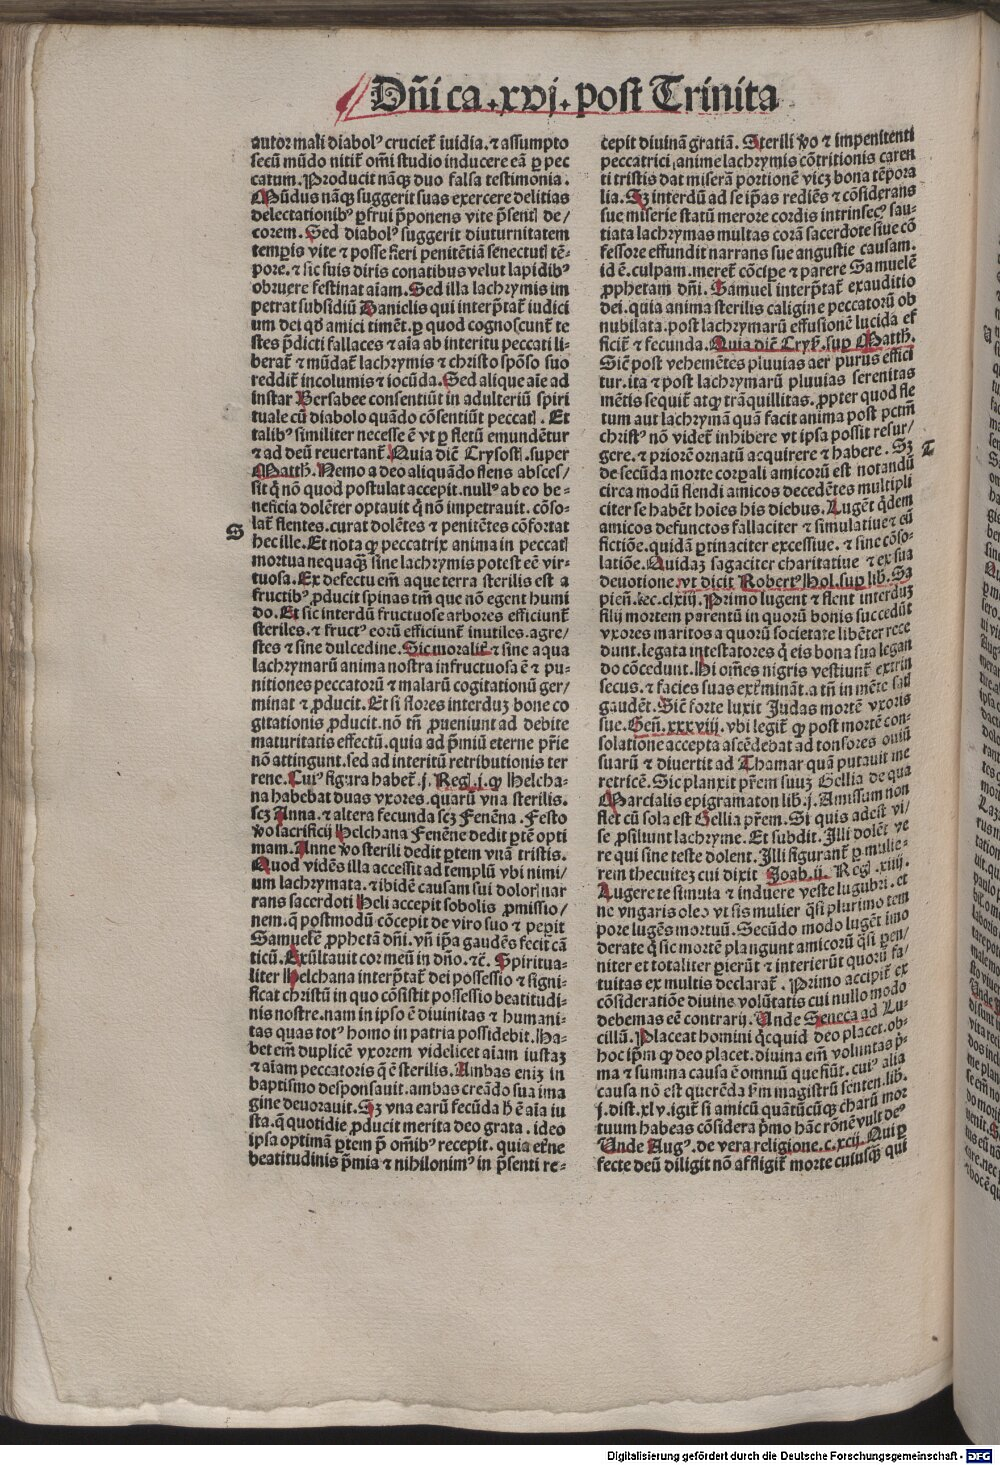 Dñica .xvj. post Trinita
autor mali diabolꝰ crucietᷓ īuidia. ⁊ assumpto
secū mūdo nititᷓ om̄i studio inducere eā ꝑ pec
catum. Producit nāqꝫ duo falsa testimonia.
Mūdus nāqꝫ suggerit suas exercere delitias
delectationibꝰ ꝑfrui p̄ponens vite p̄senti de/
corem. Sed diabolꝰ suggerit diuturnitatem
temꝑis vite ⁊ posse fieri penitētiā senectuti tē-
pore. ⁊ sic suis diris conatibus velut lapidibꝰ
obruere festinat aīam. Sed illa lachrymis im
petrat subsidiū Danielis qui interp̄tatᷓ iudici
um dei qd̄ amici timēt. ꝑ quod cognoscuntᷓ te
stes p̄dicti fallaces ⁊ aīa ab interitu peccati li-
beratᷓ ⁊ mūdatᷓ lachrymis ⁊ christo spōso suo
redditᷓ incolumis ⁊ iocūda. Sed alique aīe ad
instar Bersabee consentiūt in adulteriū spiri
tuale cū diabolo quādo cōsentiūt peccati. Et
talibꝰ similiter necesse ē vt ꝑ fletū emundētur
⁊ ad deū reuertantᷓ. Quia dič Crysosti. super
Matth̄. Nemo a deo aliquādo flens absces/
sit q̄ nō quod postulat accepit. nullꝰ ab eo be-
neficia dolēter optauit q̄ nō impetrauit. cōso-
latᷓ flentes. curat dolētes ⁊ penitētes cōfortat
S
hec ille. Et nota qꝙ peccatrix anima in peccati
mortua nequaqꝫ sine lachrymis potest eē vir-
tuosa. Ex defectu em̄ aque terra sterilis est a
fructibꝰ ꝓducit spinas tm̄ que nō egent humi
do. Et sic interdū fructuose arbores efficiuntᷓ
steriles. ⁊ fructꝰ eorū efficiuntᷓ inutiles. agre/
stes ⁊ sine dulcedine. Sic moralitᷓ ⁊ sine aqua
lachrymarū anima nostra infructuosa ē ⁊ pu-
nitiones peccatorū ⁊ malarū cogitationū ger/
minat ⁊ ꝓducit. Et si flores interduꝫ bone co
gitationis ꝓducit. nō tn̄ ꝓueniunt ad debite
maturitatis effectū. quia ad p̄miū eterne p̄rie
nō attingunt. sed ad interitū retributionis ter
rene. Cuiꝰ figura habetᷓ .j. Reg. .j. qꝙ Helcha-
na habebat duas vxores. quarū vna sterilis.
scꝫ Anna. ⁊ altera fecunda scꝫ Fenēna. Festo
vo sacrificij Helchana Fenēne dedit ꝑtē opti
mam. Anne vo sterili dedit ꝑtem vnā tristis.
Quod vidēs illa accessit ad templū vbi nimi/
um lachrymata. ⁊ ibidē causam sui doloris nar
rans sacerdoti Heli accepit sobolis ꝓmissio/
nem. q̄ postmodū cōcepit de viro suo ⁊ peꝑit
Samuelē ꝓphetā dn̄i. vn̄ ip̄a gaudēs fecit cā
ticū. Exultauit cor meū in dn̄o. ⁊c. Spiritua-
liter Helchana interp̄tatᷓ dei possessio ⁊ signi-
ficat christū in quo cōsistit possessio beatitudi-
nis nostre. nam in ipso ē diuinitas ⁊ humani-
tas quas totꝰ homo in patria possidebit. Ha-
bet em̄ duplicē vxorem videlicet aīam iustaꝫ
⁊ aīam peccatoris q̄ ē sterilis. Ambas eniꝫ in
baptismo desponsauit. ambas creādo sua ima
gine deuorauit. Sꝫ vna earū fecūda h̄ ē aīa iu
sta. q̄ quotidie ꝓducit merita deo grata. ideo
ipsa optimā ꝑtem p̄ om̄ibꝰ recepit. quia et̄ne
beatitudinis p̄mia ⁊ nihilonimꝰ in p̄senti re-
cepit diuinā gratiā. Sterili vo ⁊ impenitenti
peccatrici, anime lachrymis cōtritionis caren
ti tristis dat miserā portionē vicꝫ bona tēpora
lia. Sꝫ interdū ad se ip̄as rediēs ⁊ cōsiderans
sue miserie statū merore cordis intrinsecꝰ sau-
tiata lachrymas multas corā sacerdote siue cō
fessore effundit narrans sue angustie causam.
id ē. culpam. meretᷓ cōcipe ⁊ parere Samuelē
ꝓphetam dn̄i. Samuel interp̄tatᷓ exauditio
dei. quia anima sterilis caligine peccatorū ob
nubilata. post lachrymarū effusionē lucida ef
ficitᷓ ⁊ fecunda. Quia dič Crys̄. sup Matth̄.
Sič post vehemētes pluuias aer purus effici
tur. ita ⁊ post lachrymarū pluuias serenitas
mētis sequitᷓ atqꝫ trāquillitas. ꝓpter quod fle
tum aut lachrymā quā facit anima post pctm̄
christꝰ nō videtᷓ inhibere vt ipsa possit resur/
gere. ⁊ priorē ornatū acquirere ⁊ habere. Sꝫ
T
de secūda morte corꝑali amicorū est notandū
circa modū flendi amicos decedētes multipli
citer se habēt hoīes his diebus. Augēt q̄dem
amicos defunctos fallaciter ⁊ simulatiue ⁊ cū
fictiōe. quidā ꝑtinaciter excessiue. ⁊ sine cōso-
latiōe. Quidaꝫ sagaciter charitatiue ⁊ ex sua
deuotione. vt dicit Robertꝰ Hol. sup lib. Sa
pien̄. lec. clxiij. Primo lugent ⁊ flent interduꝫ
filij mortem parentū in quorū bonis succedūt
vxores maritos a quorū societate libēter rece
dunt. legata intestatores q̄ eis bona sua legan
do cōcedunt. Hi om̄es nigris vestiuntᷓ extrin
secus. ⁊ facies suas ext̄mināt. a tn̄ in mēte sati
gaudēt. Sič forte luxit Judas mortē vxoris
sue. Gen̄. xxxviij. vbi legitᷓ qꝙ post mortē con-
solatione accepta ascēdebat ad tonsores ouiū
suarū ⁊ diuertit ad Thamar quā putauit me
retricē. Sic planxit p̄rem suuꝫ Gellia de qua
Marcialis epigramaton lib. j. Amissum non
flet cū sola est Gellia p̄rem. Si quis adest vi/
se ꝓsiliunt lachryme. Et subdit. Illi dolēt ve
re qui sine teste dolent. Illi figurantᷓ ꝑ mulie-
rem thecuiteꝫ cui dixit Joab .ij. Reg. .xiiij.
Augere te simula ⁊ induere veste lugubri. et
ne vngaris oleo vt sis mulier q̄si plurimo tem
pore lugēs mortuū. Secūdo modo lugēt imo
derate q̄ sic mortē plangunt amicorū q̄si ꝑen/
niter et totaliter ꝑierūt ⁊ interierūt quorū fa/
tuitas ex multis declaratᷓ. Primo accipitᷓ ex
cōsideratiōe diuine volūtatis cui nullo modo
debemas eē contrarij. Unde Seneca ad Lu-
cillū. Placeat homini q̄cquid deo placet. ob-
hoc ip̄m qꝙ deo placet. diuina em̄ voluntas p̄-
ma ⁊ summa causa ē omniū que fiūt. cuiꝰ alia
causa nō est querēda s̄m magistrū senten. lib.
j. dist. xlv. igitᷓ si amicū quātūcūqꝫ charū mor
tuum habeas cōsidera p̄mo hāc rōnē vult deꝰ
Unde Augꝰ. de vera religione. c. xcij. Qui ꝑ
fecte deū diligit nō affligitᷓ morte cuiusqꝫ qui
Digitalisierung gefördert durch die Deutsche Forschungsgemeinschaft - DFG